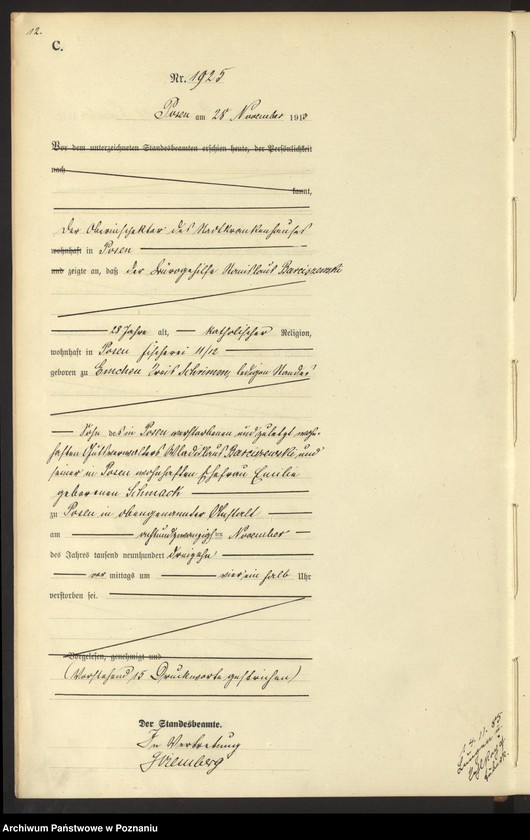 12.
C.
Nr. 1925
Posen am 28 November 1913
Vor dem unterzeichneten Standesbeamten erschien heute, der Persönlichkeit
nach
kannt,
Der Oberinspektor des Stadtkrankenhauses
wohnhaft in Posen
und zeigte an, daß der Bürogehilfe Stanislaus Barciszewski
28 Jahre alt, katholischer Religion,
wohnhaft in Posen Fischerei 11/12
geboren zu Emchen Kreis Schrimm, ledigen Standes
Sohn des in Posen verstorbenen und zuletzt wohn-
haften Gutsverwalters Wladislaus Barciszewski und
seiner in Posen wohnhaften Ehefrau Emilie
geborenen
zu Posen in obengenannter Anstalt
am achtundzwanzigsten November
des Jahres tausend neunhundert dreizehn
vor mittags um vier ein halb Uhr
verstorben sei.
Vorgelesen, genehmigt und
(Vorstehend 15 Druckworte gestrichen)
Der Standesbeamte.
In Vertretung